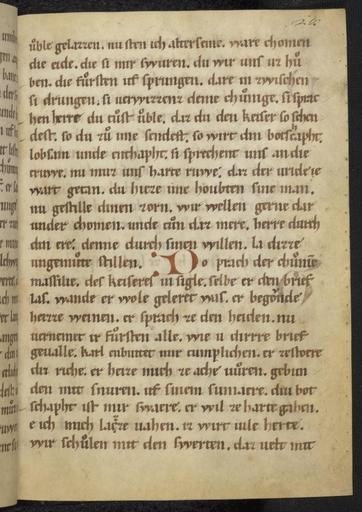 ůble gelazzen. nu sten ich alterseine. ware chomen
die eide. die si mir swůren. du wir uns ůz hů
ben. die fůrsten uf sprungen. dare in zwischen
si drungen. si
chen herre du tůst ůble. daz du den keiser so schen
dest. so du zů ime sendest. so wirt din botscapht.
lobsam unde ernhapht. si sprechent uns an die
truwe. nu muz uns harte ruwe. daz der
wart getan. du hieze ime houbten sine man.
nu gestille dinen zorn. wir wellen gerne dar
under chomen. unde tůn daz mere. herre durch
din ere. denne durch sinen willen. la dizze
ungemůte stillen. Do sprach der chunic
marssilie. des keiseres insigle. selbe er den brief
las. wande er wole geleret was. er begonde
harte weinen. er sprach ze den heiden. nu
uernemet ir fůrsten alle. wie u dirrre brief
geualle. karl enbiutet mir
die riche. er heize mich ze ache uůren. gebun
den mit snuren. uf sinem sumaere. diu bot
schapht ist mir swaere. er wil ze harte gahen.
e ich mich lazze uahen. ir wirt uile herte.
wir schůlen mit den swerten. daz uelt mit